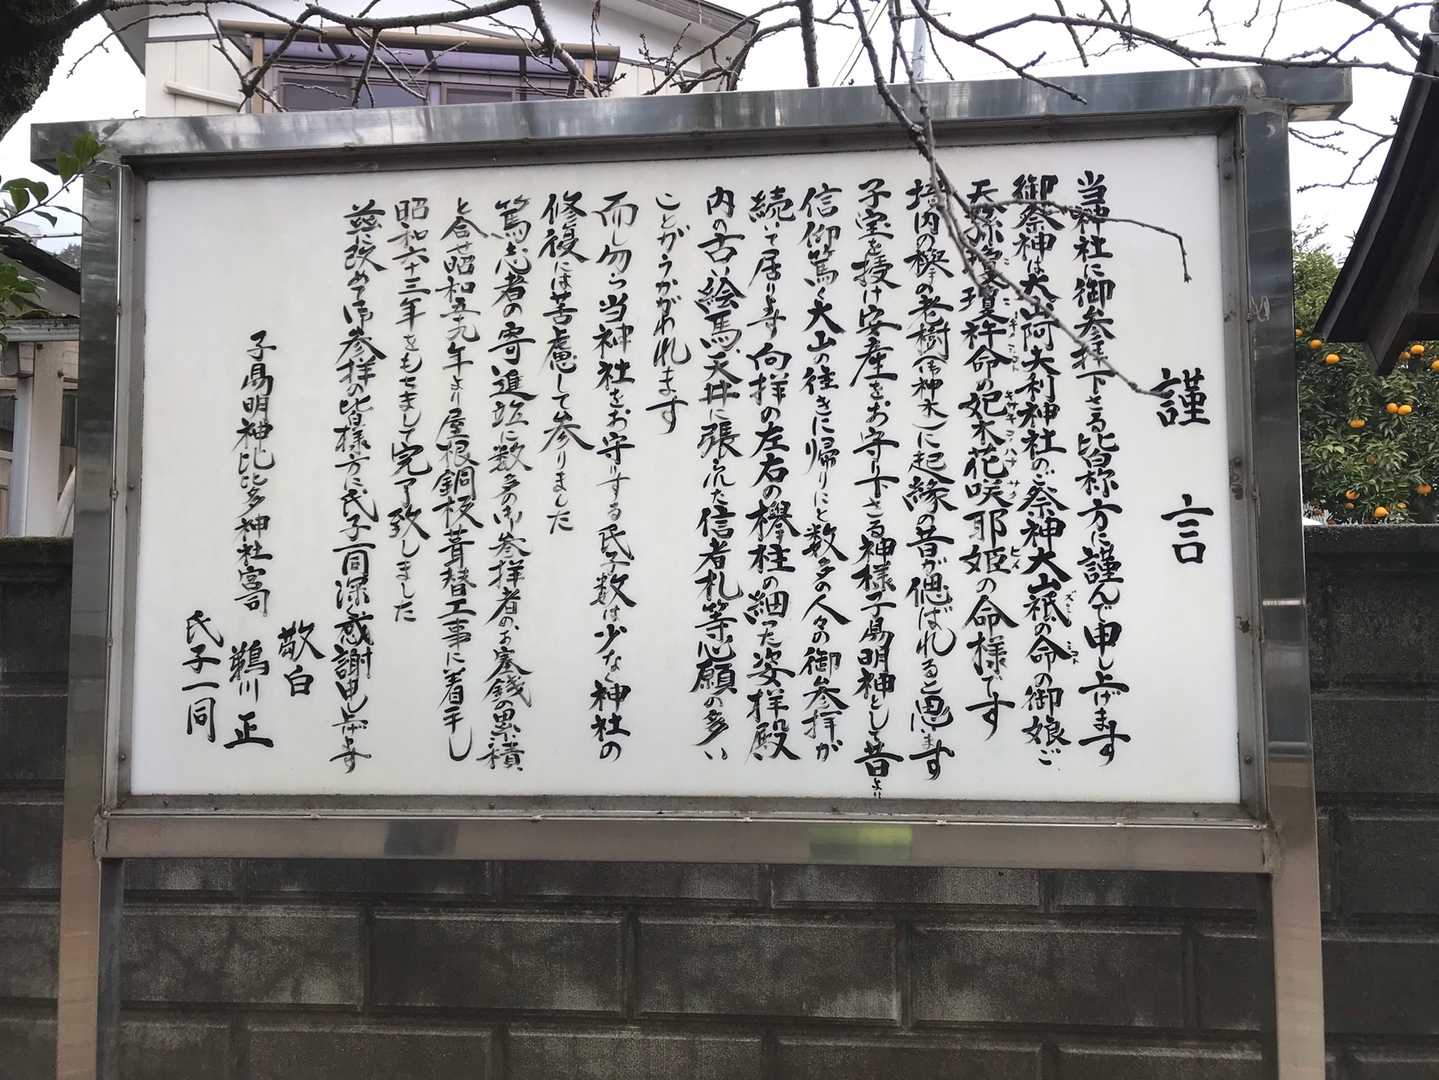 謹言
当神社に御参拝下さる皆様方に謹んで申し上げます
御祭神は大山阿夫利神社のご祭神大山祇の命の御娘ご
ズミ ミコト
天孫瓊瓊杵命の妃木花咲耶姫の命様です
ニニギ ミコト キサキ コノハナ サクヤ ヒメ
境内の欅の老樹(御神木)に起縁の昔が偲ばれると思います
子宝を授け安産をお守り下さる神様子易明神として昔より
信仰篤く大山の往きに帰りにと数多の人々の御参拝が
続いて居ります 向拝の左右の欅柱の細った姿拝殿
内の古い絵馬、天井に張られた信者札等心願の多い
ことがうかがわれます
而し乍ら当神社をお守りする氏子数は少なく神社の
修復には苦慮して参りました
篤志者の寄進並に数多の御参拝者のお賽銭の累積
と合せ昭和五九年より屋根銅板葺替工事に着手し
昭和六十三年をもちまして完了致しました
茲に改めて御参拝の皆様方に氏子一同深く感謝申し上げます
敬白
子易明神比比多神社宮司 鵜川正
氏子一同